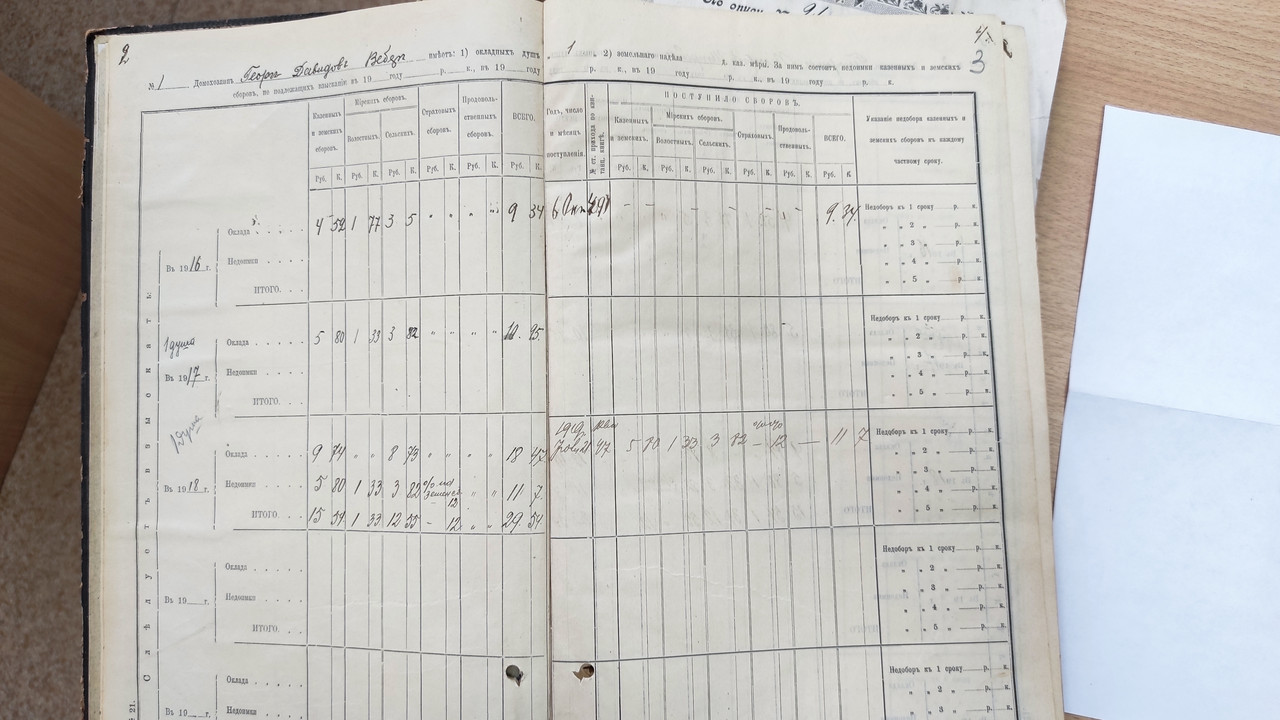 2
4
3
№ 1 Домохозяинъ Георг Давидовъ Вебер имѣетъ: 1) окладныхъ душъ 1 2) земельнаго надѣла д. каз. мѣры. За нимъ состоитъ недоимки казенныхъ и земскихъ
сборовъ, не подлежащихъ взысканію въ 19 году р. к., въ 19 году р. к., въ 19 году р. к., въ 19 году р. к.
Слѣдуетъ взыскать:
Казенныхъ и земскихъ сборовъ. Мірскихъ сборовъ. Страховыхъ сборовъ. Продовольственныхъ сборовъ. ВСЕГО.
Волостныхъ. Сельских.
Руб. К. Руб. К. Руб. К. Руб. К. Руб. К. Руб. К.
Годъ, число и мѣсяцъ поступленія. № ст. прихода по квитанц. книгѣ. ПОСТУПИЛО СБОРОВЪ. Указаніе недобора казенныхъ и земскихъ сборовъ къ каждому частному сроку.
Казенныхъ и земскихъ. Мірскихъ сборовъ. Страховыхъ. Продовольственныхъ. ВСЕГО.
Волостныхъ. Сельскихъ.
Руб. К. Руб. К. Руб. К. Руб. К. Руб. К. Руб. К
Въ 1916 г.
Оклада 4 52 1 77 3 5 " " " " 9 34 6 9. 34.
Недоимки
ИТОГО.
Недоборъ къ 1 сроку р. к.
" " 2 " р. к.
" " 3 " р. к.
" " 4 " р. к.
" " 5 " р. к.
1 душа
Въ 1917 г.
Оклада 5 80 1 33 3 82 " " " " 10. 95.
Недоимки
ИТОГО.
Недоборъ къ 1 сроку р. к.
" " 2 " р. к.
" " 3 " р. к.
" " 4 " р. к.
" " 5 " р. к.
1 душа
Въ 1918 г.
Оклада 9 74 " " 8 73 " " " " 18 47 47 5 80 1 33 3 82 - 12 — 11 7
Недоимки 5 80 1 33 3 82 12 " " 11 7
ИТОГО 15 54 1 33 12 55 - 12 " " 29 54
Недоборъ къ 1 сроку р. к.
" " 2 " р. к.
" " 3 " р. к.
" " 4 " р. к.
" " 5 " р. к.
Въ 19 г.
Оклада
Недоимки
ИТОГО.
Недоборъ къ 1 сроку р. к.
" " 2 " р. к.
" " 3 " р. к.
" " 4 " р. к.
" " 5 " р. к.
Въ 19 г.
Оклада
Недоимки
Недоборъ къ 1 сроку р. к.
" " 2 " р. к.
" " 3 " р. к.
21.